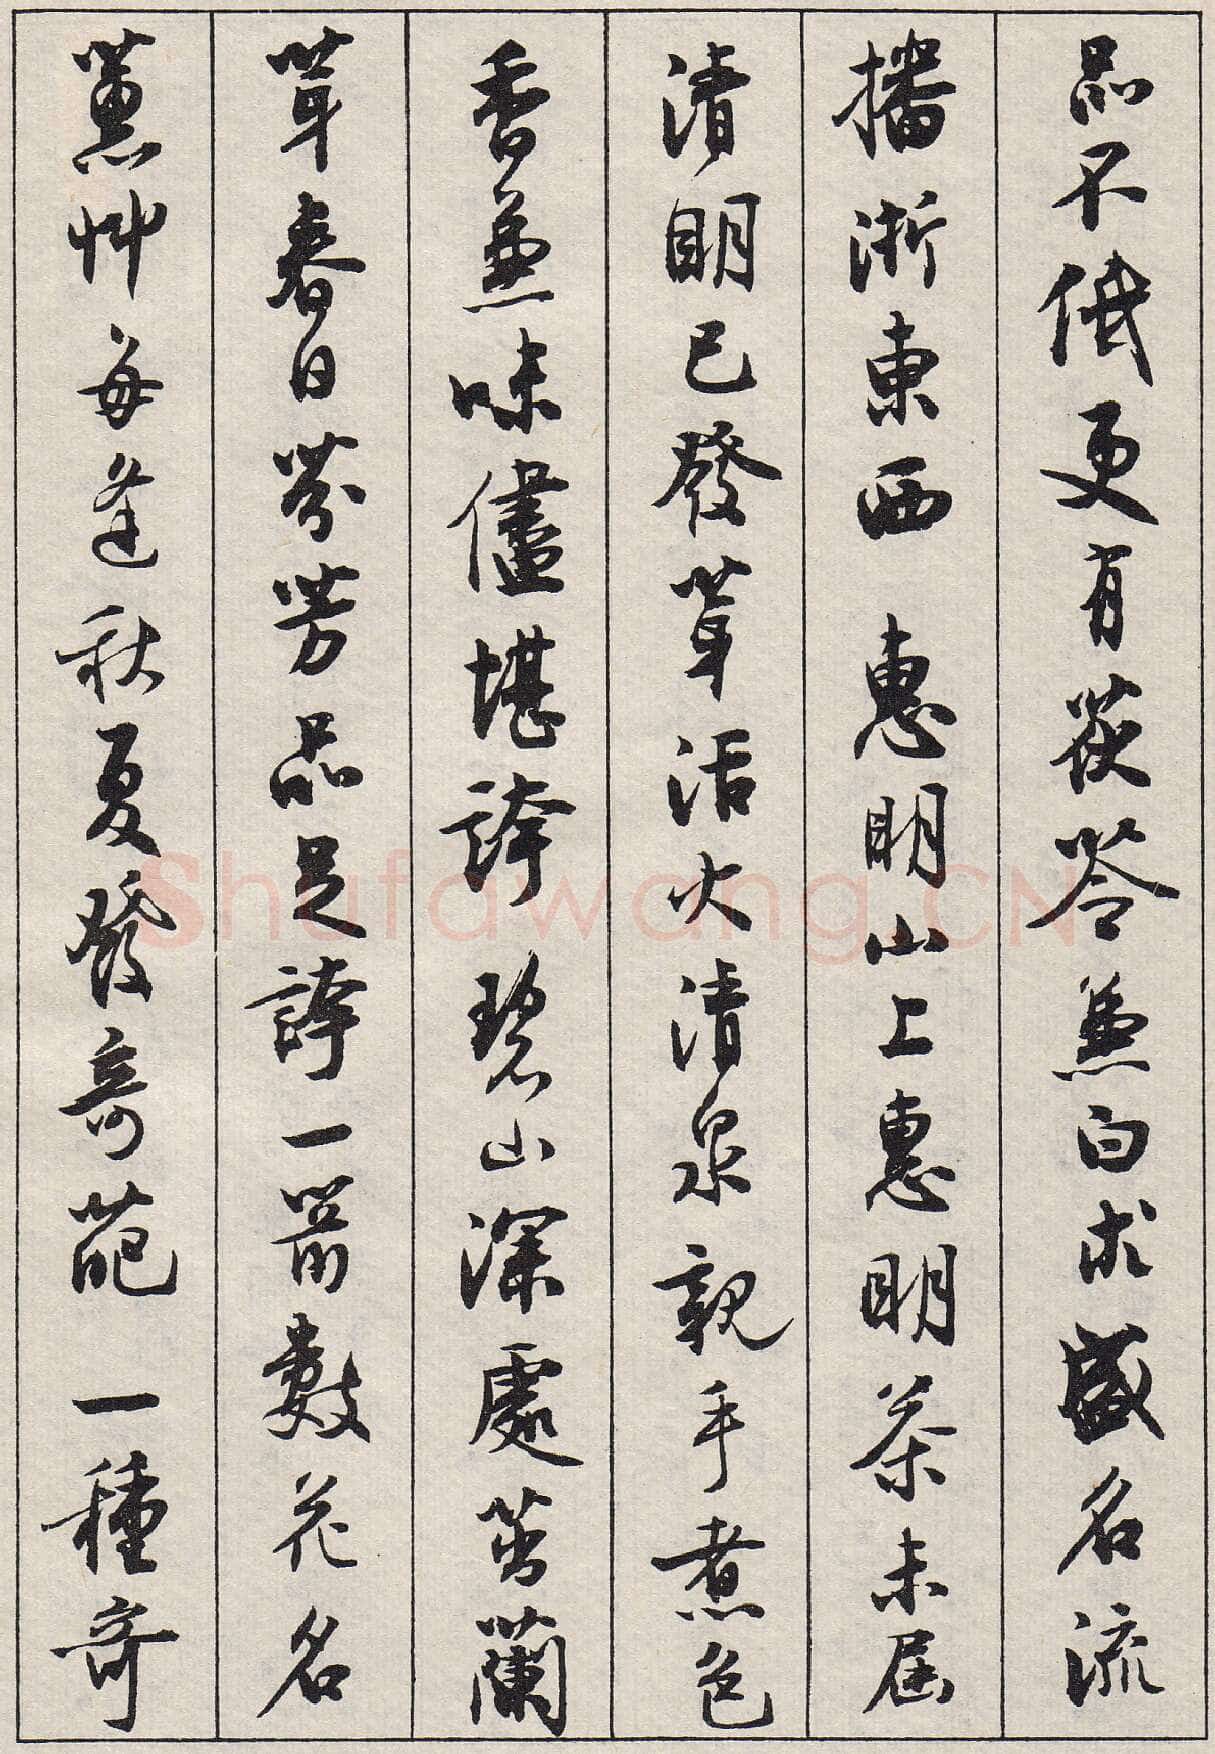 品不低更有茯苓兼白术盛名流
播浙東西 惠明山上惠明茶未屆
清明已發茸活火清泉親手煮色
香兼味儘堪誇 碧山深處茁蘭
茸春日芬芳品足誇一箭數花名
蕙艸每逢秋夏發奇葩 一種奇
Shufawang.CN